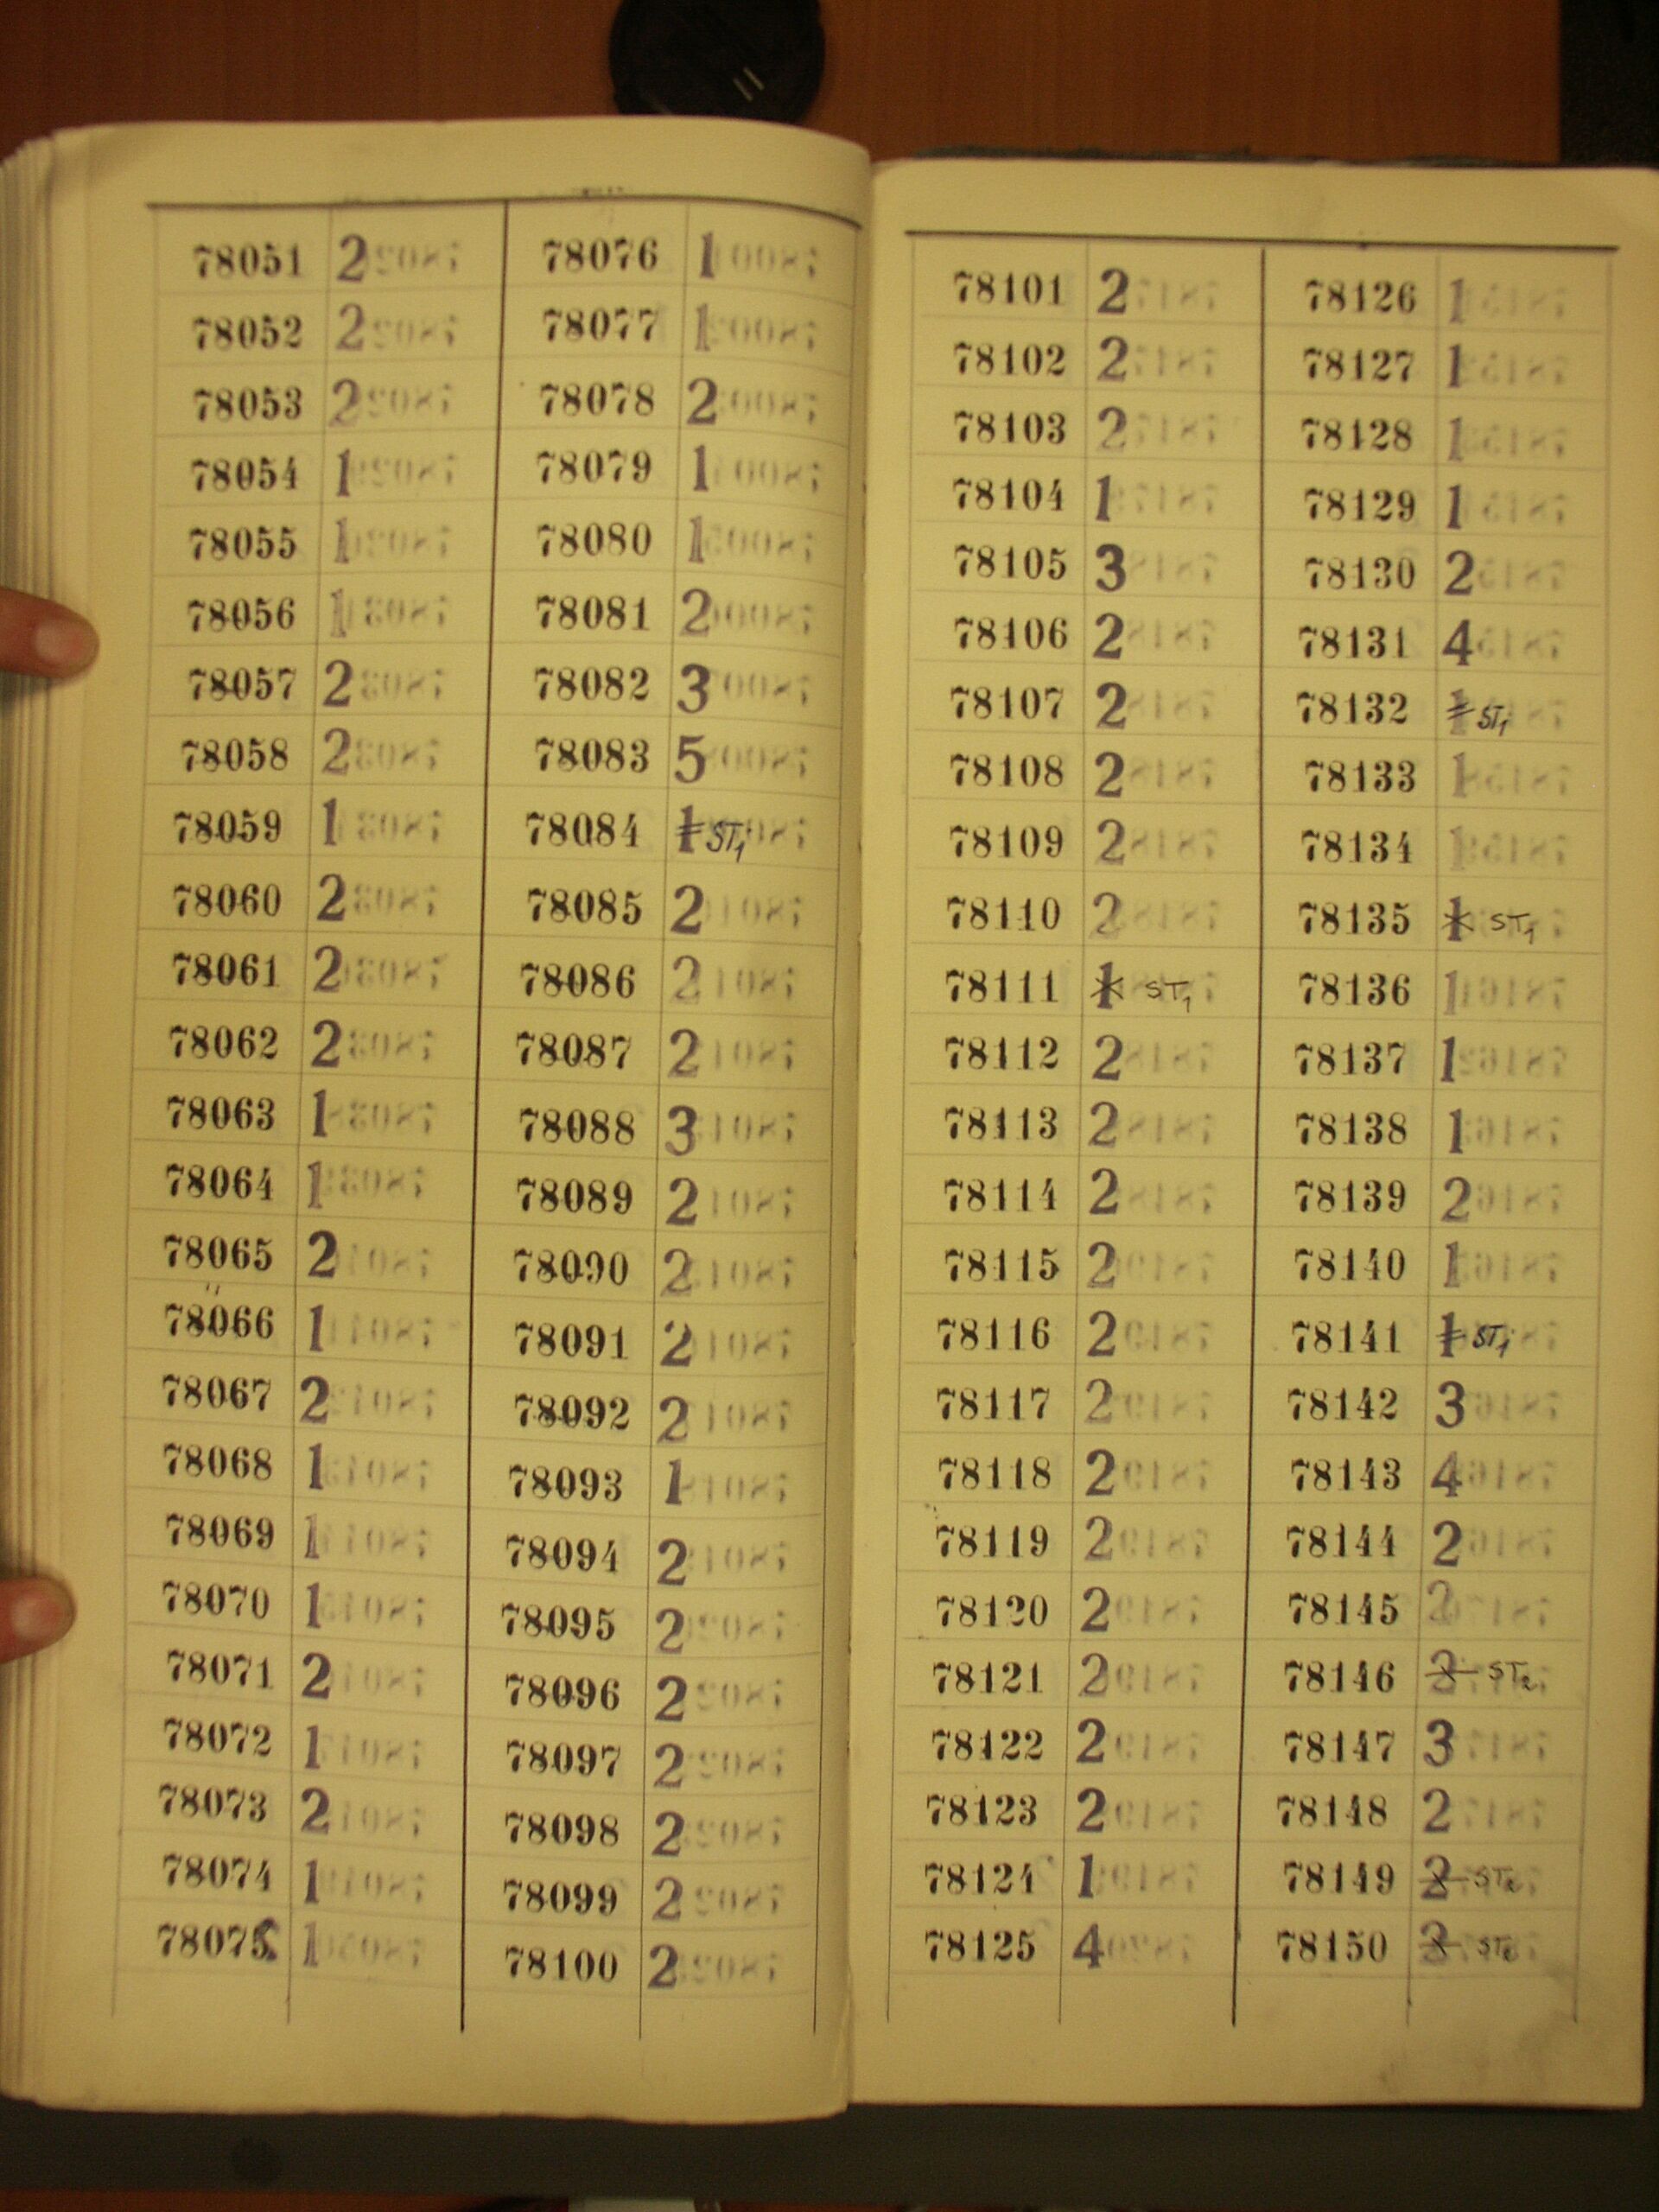 78051 2
78052 2
78053 2
78054 1
78055 1
78056 1
78057 2
78058 2
78059 1
78060 2
78061 2
78062 2
78063 1
78064 1
78065 2
78066 1
78067 2
78068 1
78069 1
78070 1
78071 2
78072 1
78073 2
78074 1
78075 1
78076 1
78077 1
78078 2
78079 1
78080 1
78081 2
78082 3
78083 5
78084 1 ST1
78085 2
78086 2
78087 2
78088 3
78089 2
78090 2
78091 2
78092 2
78093 1
78094 2
78095 2
78096 2
78097 2
78098 2
78099 2
78100 2
78101 2
78102 2
78103 2
78104 1
78105 3
78106 2
78107 2
78108 2
78109 2
78110 2
78111 1 ST1
78112 2
78113 2
78114 2
78115 2
78116 2
78117 2
78118 2
78119 2
78120 2
78121 2
78122 2
78123 2
78124 1
78125 4
78126 1
78127 1
78128 1
78129 1
78130 2
78131 4
78132 1 ST1
78133 1
78134 1
78135 1 ST1
78136 1
78137 1
78138 1
78139 2
78140 1
78141 1 ST1
78142 3
78143 4
78144 2
78145 2
78146 2 ST2
78147 3
78148 2
78149 2 ST2
78150 2 ST2